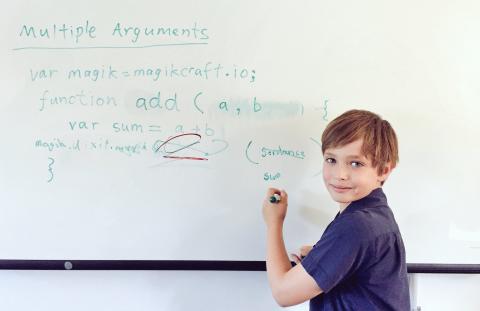 Multiple Arguments
var magik = magikcraft.io;
function add ( a, b ) {
var sum = a + b
magik.d
( sentence )
sum
}